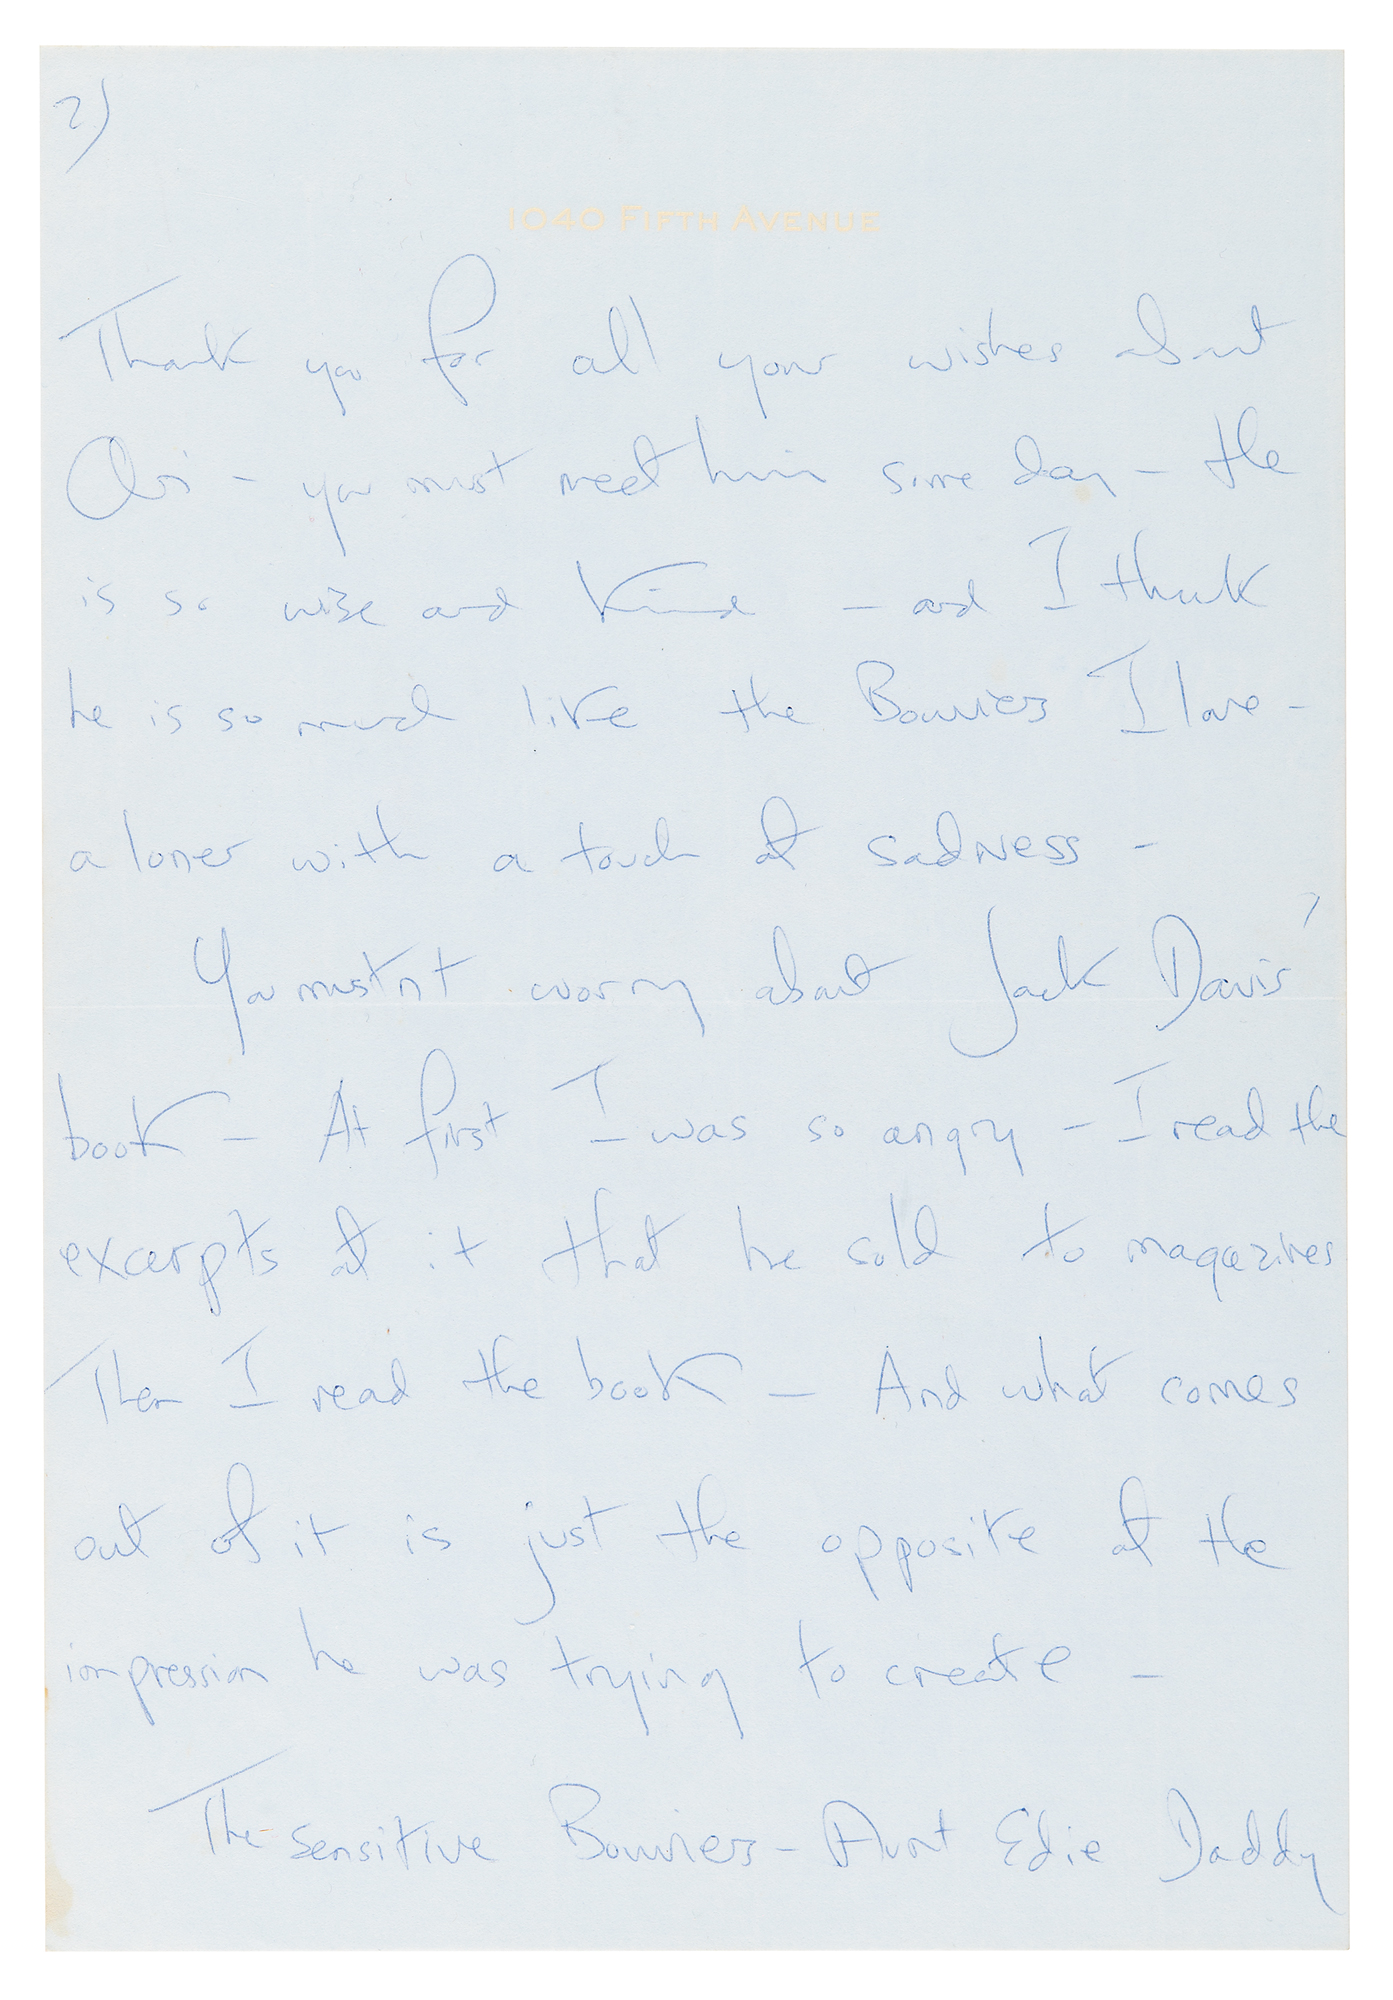 2)
1040 FIFTH AVENUE
Thank you for all your wishes about
Ari - you must meet him some day - He
is so wise and kind - and I think
he is so much like the Bouviers I love -
a loner with a touch of sadness -
You mustn't worry about Jack Davis'
book - At first I was so angry - I read the
excerpts of it that he sold to magazines
Then I read the book - And what comes
out of it is just the opposite of the
impression he was trying to create -
The sensitive Bouviers - Aunt Edie Daddy